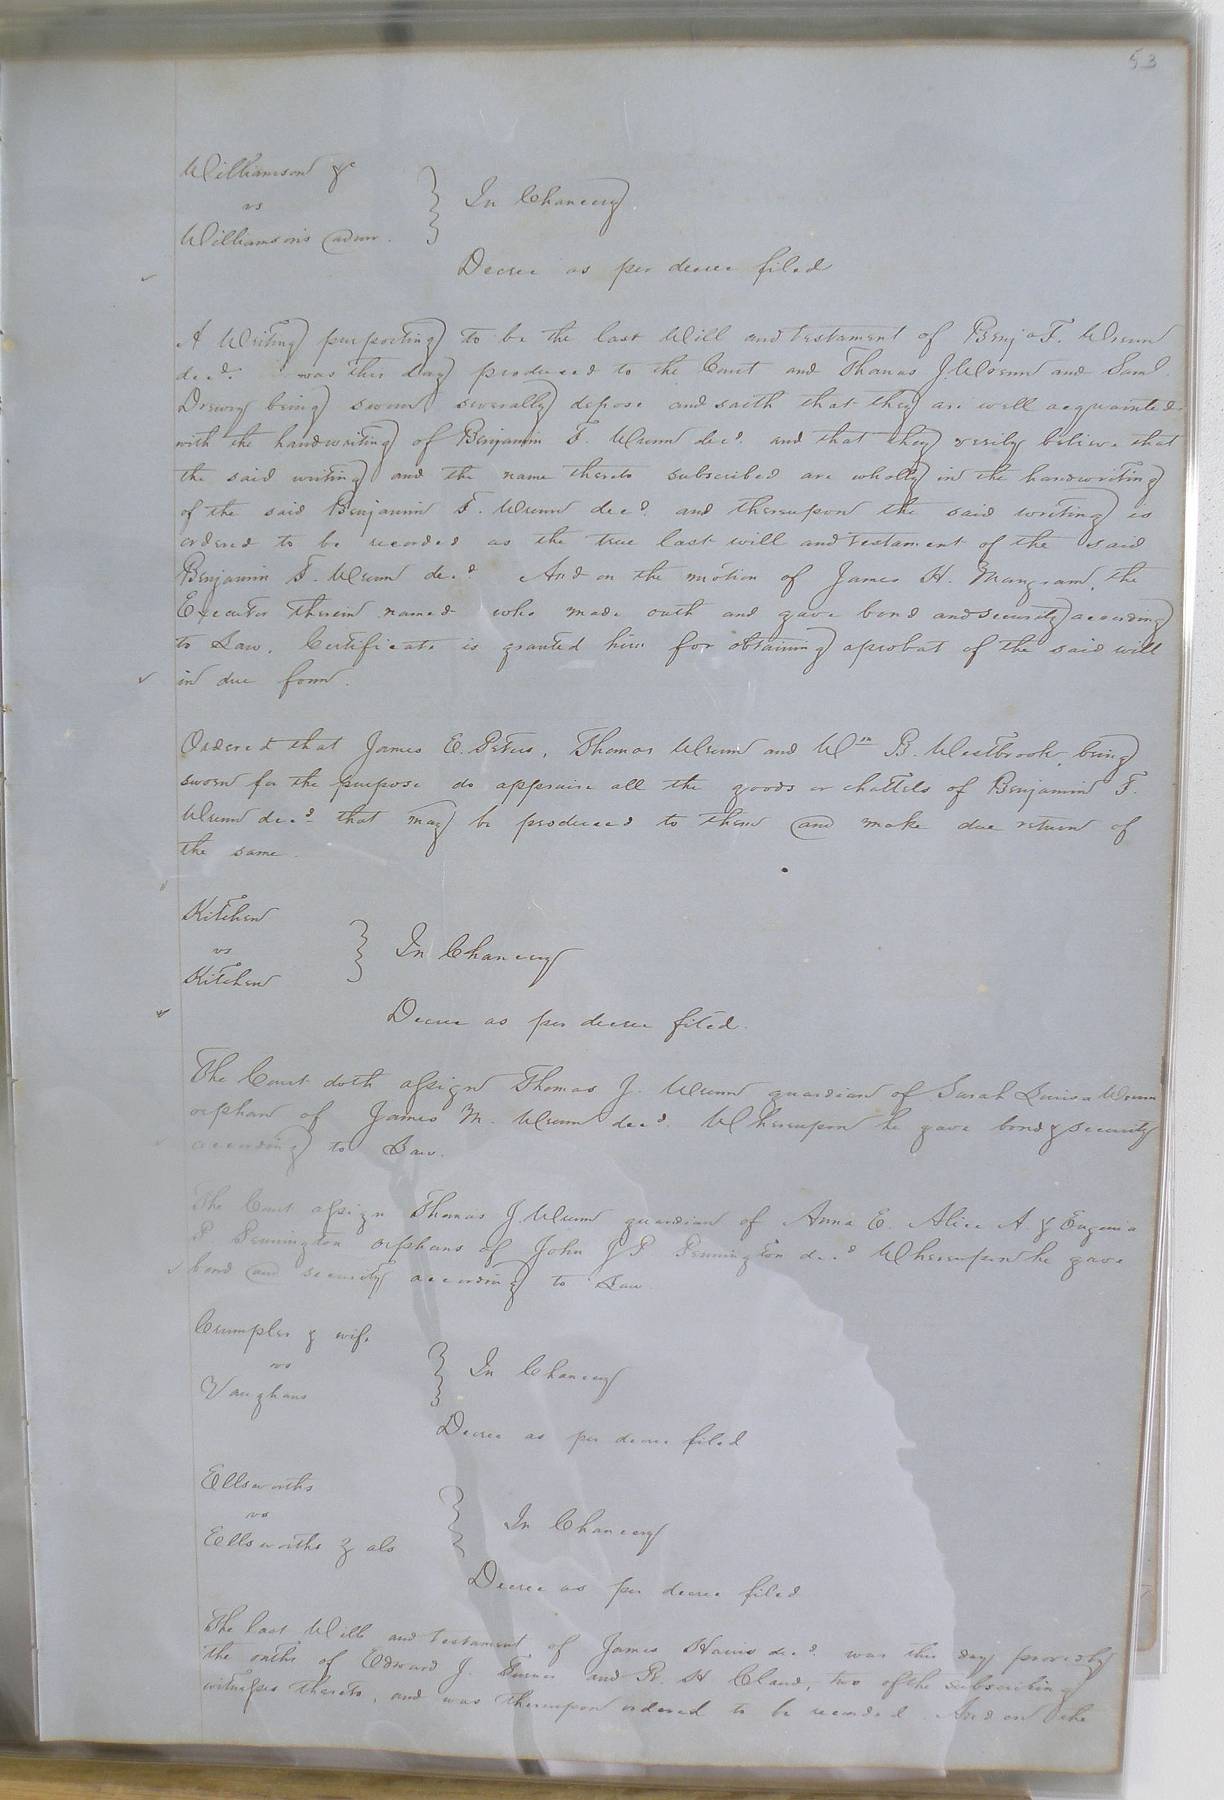 53
Williamson &c
vs
Williamson's admr.
In Chancery
Decree as per decree filed
A Writing purporting to be the last Will and testament of Benja F. Wrenn
decd. was this day produced to the Court and Thomas J. Wrenn and Saml
Drewry being sworn severally depose and saith that they are well acquainted
with the handwriting of Benjamin F. Wrenn decd. and that they verily believe that
the said writing and the name thereto subscribed are wholly in the handwriting
of the said Benjamin F. Wrenn decd. and thereupon the said writing is
ordered to be recorded as the true last will and testament of the said
Benjamin F. Wrenn decd And on the motion of James H. Mangram, the
Executor therein named who made oath and gave bond and security according
to Law, Certificate is granted him for obtaining a probat of the said will
in due form.
Ordered that James E. Peters, Thomas Wrenn and Wm B. Westbrook, being
sworn for the purpose do appraise all the goods or chattels of Benjamin F.
Wrenn decd. that may be produced to them and make due return of
the same.
Kitchen
vs
Kitchen
In Chancery
Decree as per decree filed.
The Court doth assign Thomas J. Wrenn guardian of Sarah Louisa Wrenn
orphan of James M. Wrenn decd. Whereupon he gave bond & security
according to Law.
The Court assign Thomas J. Wrenn guardian of Anna E. Alice A. & Eugenia
P Pennington orphans of John J P Pennington decd Whereupon he gave
bond and security according to Law.
Crumpler & wife
vs
Vaughans
In Chancery
Decree as per decree filed
Ellsworths
vs
Ellsworths & als
In Chancery
Decree as per decree filed
The last Will and testament of James Harris decd. was this day proved by
the oaths of Edward J. Turner and R. H Claud, two of the subscribing
witnesses thereto, and was thereupon ordered to be recorded. And on the